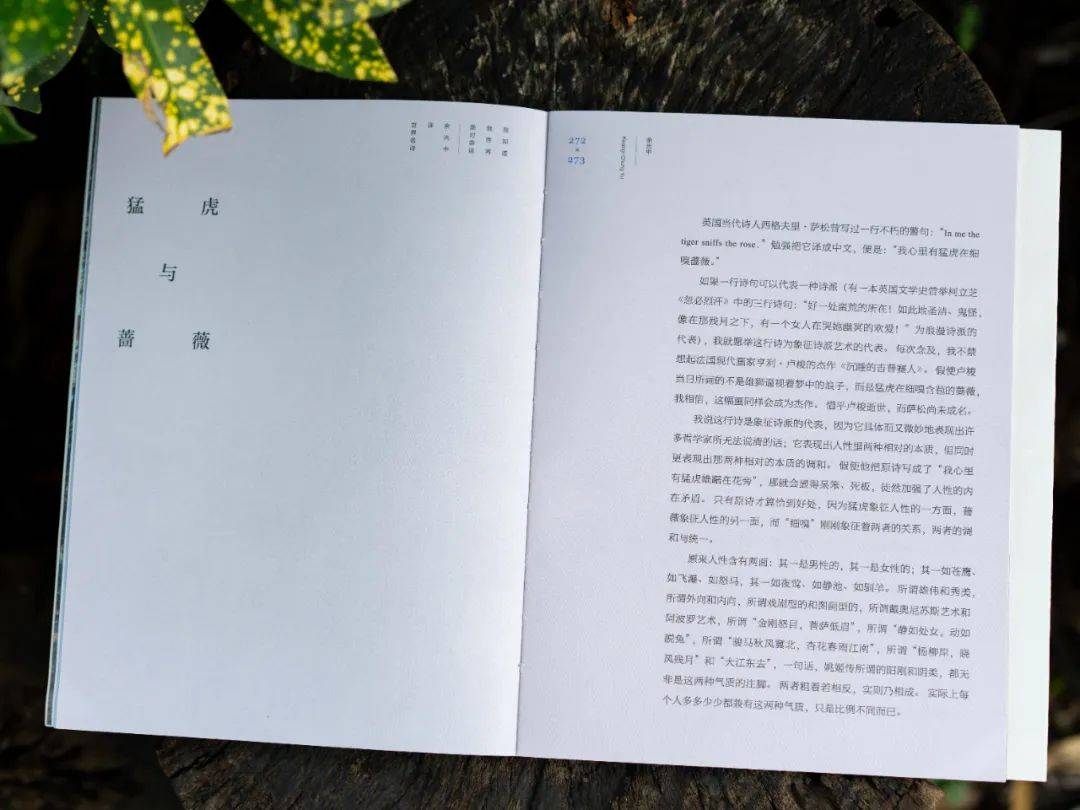 我知道
我终将
余光中
译
猛 虎
与
蔷 薇
272
×
273
余光中
Kwang-Chung Yu
英国当代诗人西格夫里·萨松曾写过一行不朽的警句：“In me the
tiger sniffs the rose.”勉强把它译成中文，便是：“我心里有猛虎在细
嗅蔷薇。”
如果一行诗句可以代表一种诗派（有一本英国文学史曾举柯立芝
《忽必烈汗》中的三行诗句：“好一处蛮荒的所在！如此地圣洁、鬼怪，
像在那残月之下，有一个女人在哭她幽冥的欢爱！”为浪漫诗派的
代表），我就愿举这行诗为象征诗派艺术的代表。每次念及，我不禁
想起法国现代画家亨利·卢梭的杰作《沉睡的吉普赛人》。假使卢梭
当日所画的不是雄狮逼视着梦中的浪子，而是猛虎在细嗅含苞的蔷薇，
我相信，这幅画同样会成为杰作。惜乎卢梭逝世，而萨松尚未成名。
我说这行诗是象征诗派的代表，因为它具体而又微妙地表现出许
多哲学家所无法说清的话；它表现出人性里两种相对的本质，但同时
更表现出那两种相对的本质的调和。假使他把原诗写成了“我心里
有猛虎雄踞在花旁”，那就会显得呆笨、死板，徒然加强了人性的内
在矛盾。只有原诗才算恰到好处，因为猛虎象征人性的一方面，蔷
薇象征人性的另一面，而“细嗅”刚刚象征着两者的关系，两者的调
和与统一。
原来人性含有两面：其一是男性的，其一是女性的；其一如苍鹰，
如飞瀑，如怒马，其一如夜莺，如静池，如驯羊。所谓雄伟和秀美，
所谓外向和内向，所谓戏剧型的和图画型的，所谓戴奥尼苏斯艺术和
阿波罗艺术，所谓“金刚怒目，菩萨低眉”，所谓“静如处女，动如
脱兔”，所谓“骏马秋风冀北，杏花春雨江南”，所谓“杨柳岸，晓
风残月”和“大江东去”，一句话，姚姬传所谓的阳刚和阴柔，都无
非是这两种气质的注脚。两者粗看若相反，实则乃相成。实际上每
个人多多少少都兼有这两种气质，只是比例不同而已。